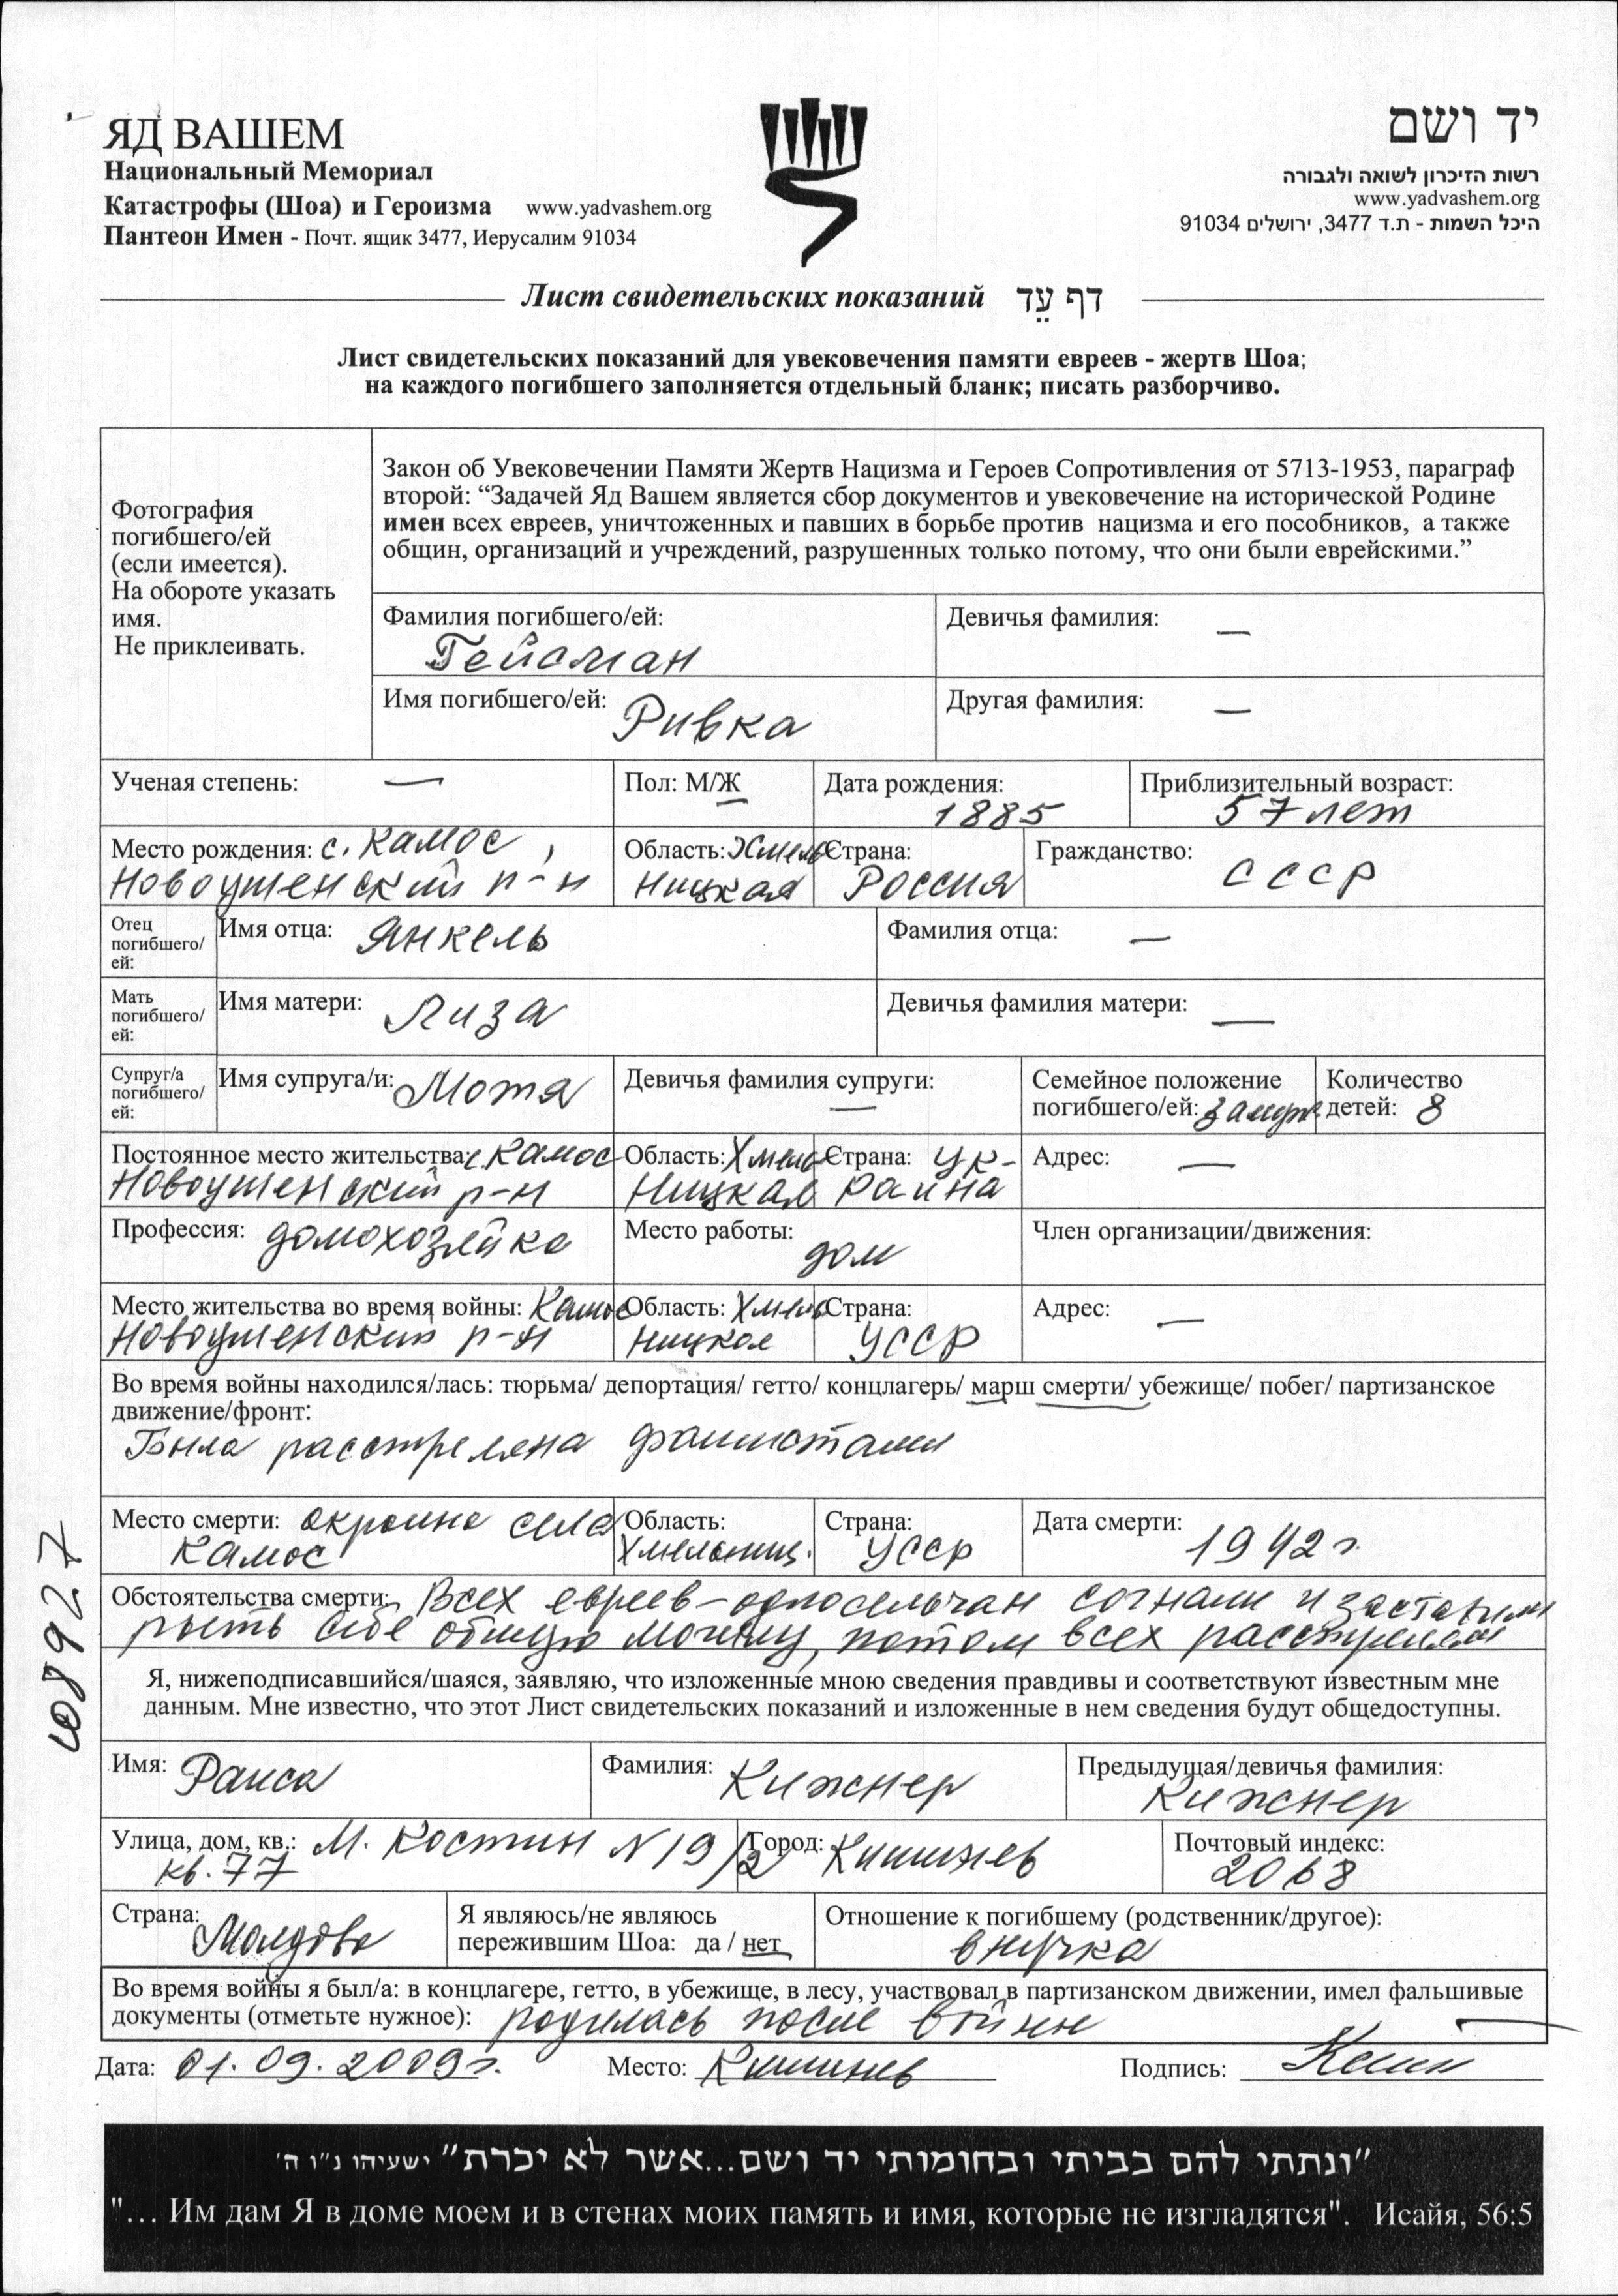 ЯД ВАШЕМ
Национальный Мемориал
Катастрофы (Шоа) и Героизма www.yadvashem.org
Пантеон Имен - Почт. ящик 3477, Иерусалим 91034
יד ושם
רשות הזיכרון לשואה ולגבורה
www.yadvashem.org
היכל השמות - ת.ד 3477, ירושלים 91034
Лист свидетельских показаний דף עֵד
Лист свидетельских показаний для увековечения памяти евреев - жертв Шоа;
на каждого погибшего заполняется отдельный бланк; писать разборчиво.
Фотография
погибшего/ей
(если имеется).
На обороте указать
имя.
Не приклеивать.
Закон об Увековечении Памяти Жертв Нацизма и Героев Сопротивления от 5713-1953, параграф
второй: “Задачей Яд Вашем является сбор документов и увековечение на исторической Родине
имен всех евреев, уничтоженных и павших в борьбе против нацизма и его пособников, а также
общин, организаций и учреждений, разрушенных только потому, что они были еврейскими.”
Фамилия погибшего/ей: Девичья фамилия: —
Гейсман
Имя погибшего/ей: Ривка Другая фамилия: —
Ученая степень: — Пол: М/Ж Дата рождения: 1885 Приблизительный возраст: 57 лет
Место рождения: с. Камос, Область: Хмель Страна: Гражданство: СССР
Новоушенский р-н ницкая Россия
Отец погибшего/ей: Имя отца: Янкель Фамилия отца: —
Мать погибшего/ей: Имя матери: Лиза Девичья фамилия матери: —
Супруг/а погибшего/ей: Имя супруга/и: Мотя Девичья фамилия супруги: — Семейное положение погибшего/ей: замуж. Количество детей: 8
Постоянное место жительства: с. Камос Область: Хмель Страна: Ук- Адрес: —
Новоушенский р-н ницкая раина
Профессия: домохозяйка Место работы: дом Член организации/движения:
Место жительства во время войны: Камос Область: Хмель Страна: Адрес: —
Новоушенский р-н ницкая УССР
Во время войны находился/лась: тюрьма/ депортация/ гетто/ концлагерь/ марш смерти/ убежище/ побег/ партизанское
движение/фронт:
Была расстреляна фашистами
Место смерти: окраина села Область: Страна: Дата смерти: 1942 г.
Камос Хмельниц. УССР
Обстоятельства смерти: Всех евреев-односельчан согнали и заставили
рыть себе общую могилу, потом всех расстреляли
Я, нижеподписавшийся/шаяся, заявляю, что изложенные мною сведения правдивы и соответствуют известным мне
данным. Мне известно, что этот Лист свидетельских показаний и изложенные в нем сведения будут общедоступны.
Имя: Раиса Фамилия: Кижнер Предыдущая/девичья фамилия:
Кижнер
Улица, дом, кв.: М. Костин N 19/2 Город: Кишинев Почтовый индекс:
кв. 77 2068
Страна: Молдова Я являюсь/не являюсь Отношение к погибшему (родственник/другое):
пережившим Шоа: да / нет внучка
Во время войны я был/а: в концлагере, гетто, в убежище, в лесу, участвовал в партизанском движении, имел фальшивые
документы (отметьте нужное): родилась после войны
Дата: 01.09.2009 г. Место: Кишинев Подпись:
"ונתתי להם בביתי ובחומותי יד ושם...אשר לא יכרת" ישעיהו נ"ו ה'
"… Им дам Я в доме моем и в стенах моих память и имя, которые не изгладятся". Исайя, 56:5